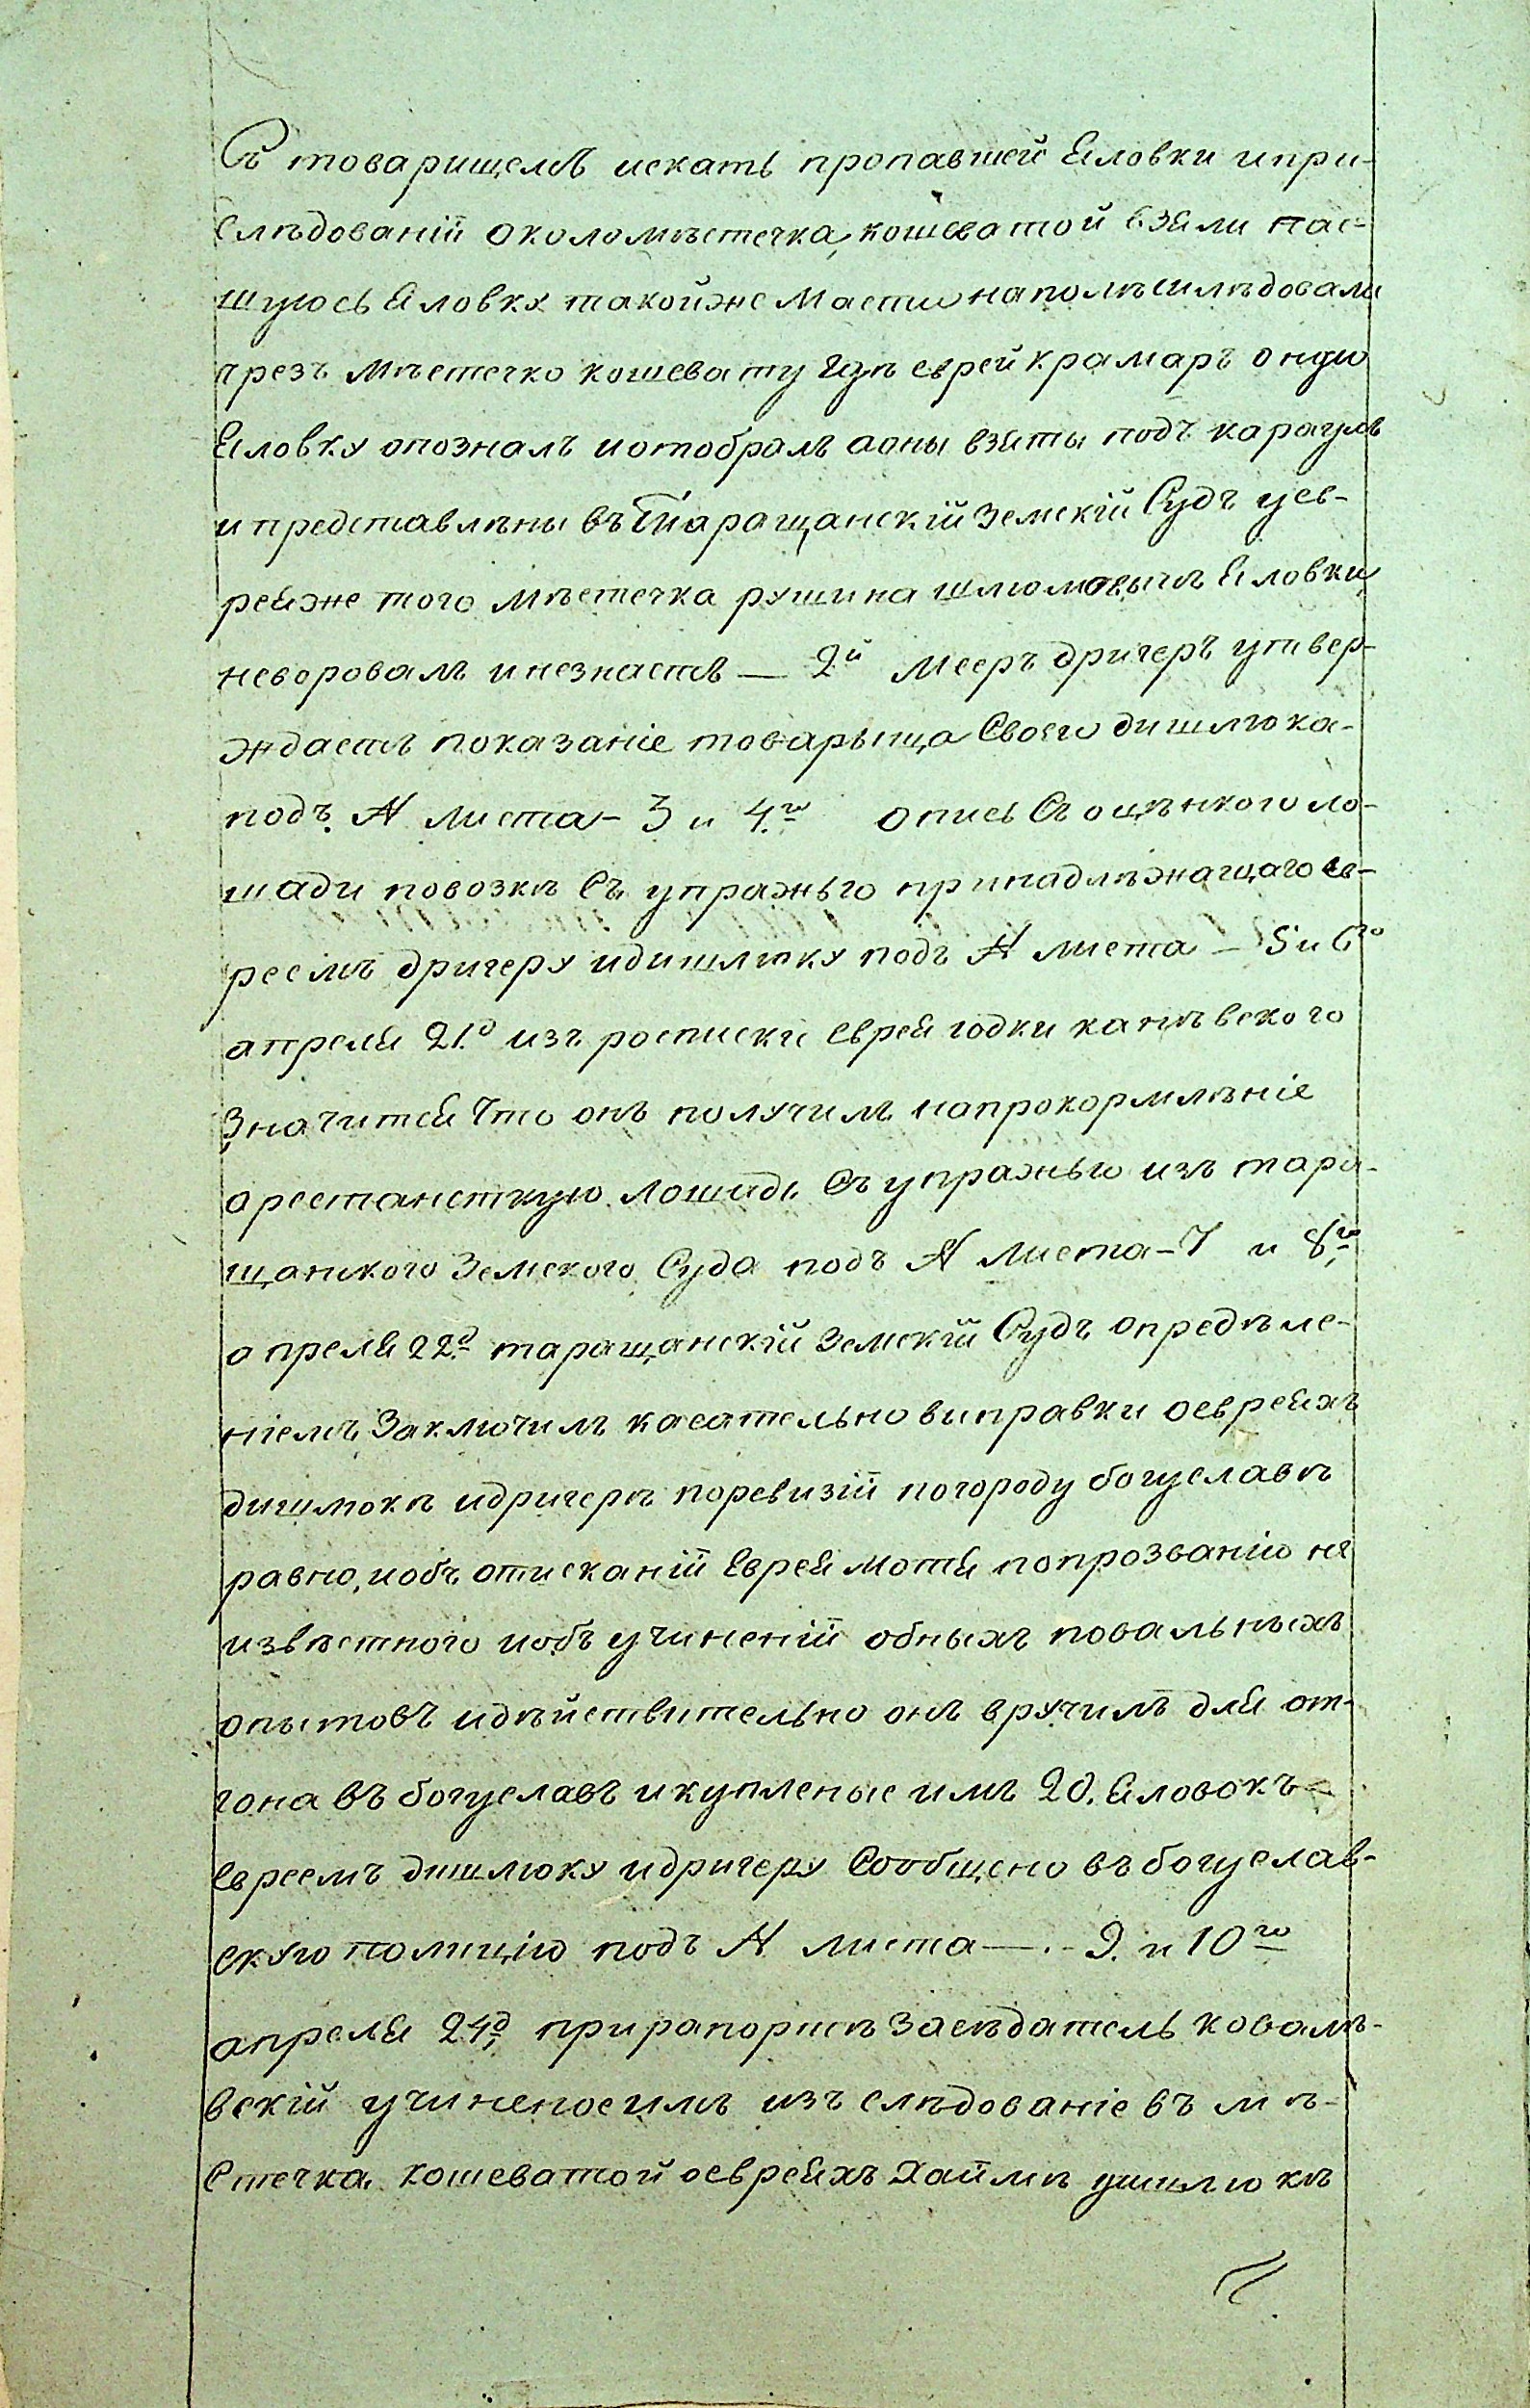 Съ товарищемъ искать пропавшей яловки ипри-
слѣдованій околомѣстечка кошеватой взяли пас-
шуюсь яловку такойже масти наполѣ ислѣдовали
чрезъ мѣстечко кошевату гдѣ еврей крамаръ оную
яловку опозналъ иотобралъ аоны взяты подъ караулъ
и представлѣны въ Таращанскій земскій Судъ уев-
реяже того мѣстечка рушина шлюмовыча яловки
неворовалъ инезнаетъ — 2й меер дригеръ утвер-
ждаетъ показаніе товарыща Своего дишлюка-
подъ № листа - 3 и 4го опись Съ оцѣнкою ло-
шади повозкѣ Съ упражью принадлѣжащаго ев-
реемъ дригеру идишлюку подъ № листа — 5 и 6го
апреля 21д изъ росписки еврея годки канѣвского
значится что онъ получилъ напрокормлѣніе
арестанткую лошадь Съ упражью изъ тара-
щанского земского Суда подъ № листа - 7 и 8го
апреля 22д таращанскій земскій Судъ опредѣле-
ніемъ заключилъ касательно виправки оевреяхъ
дишлюкѣ идригерѣ поревизій погороду богуславѣ
равно, иобъ отисканій еврея мотя попрозванію не
извѣстного иобъ учиненій обныхъ повальныхъ
опытовъ идѣйствительно онъ вручилъ для от-
гона въ богуславъ икупленые имъ 20. яловокъ
евреемъ дишлюку идригеру Сообщено въ богуслав-
скую полицію подъ № листа —.- 9. и 10го
апреля 24д при рапортѣ засѣдатель ковалѣ-
вскій учиненоеимъ изъ слѣдованіе въ мѣ-
стечка кошеватой оевреяхъ Хаймѣ ушлюкѣ